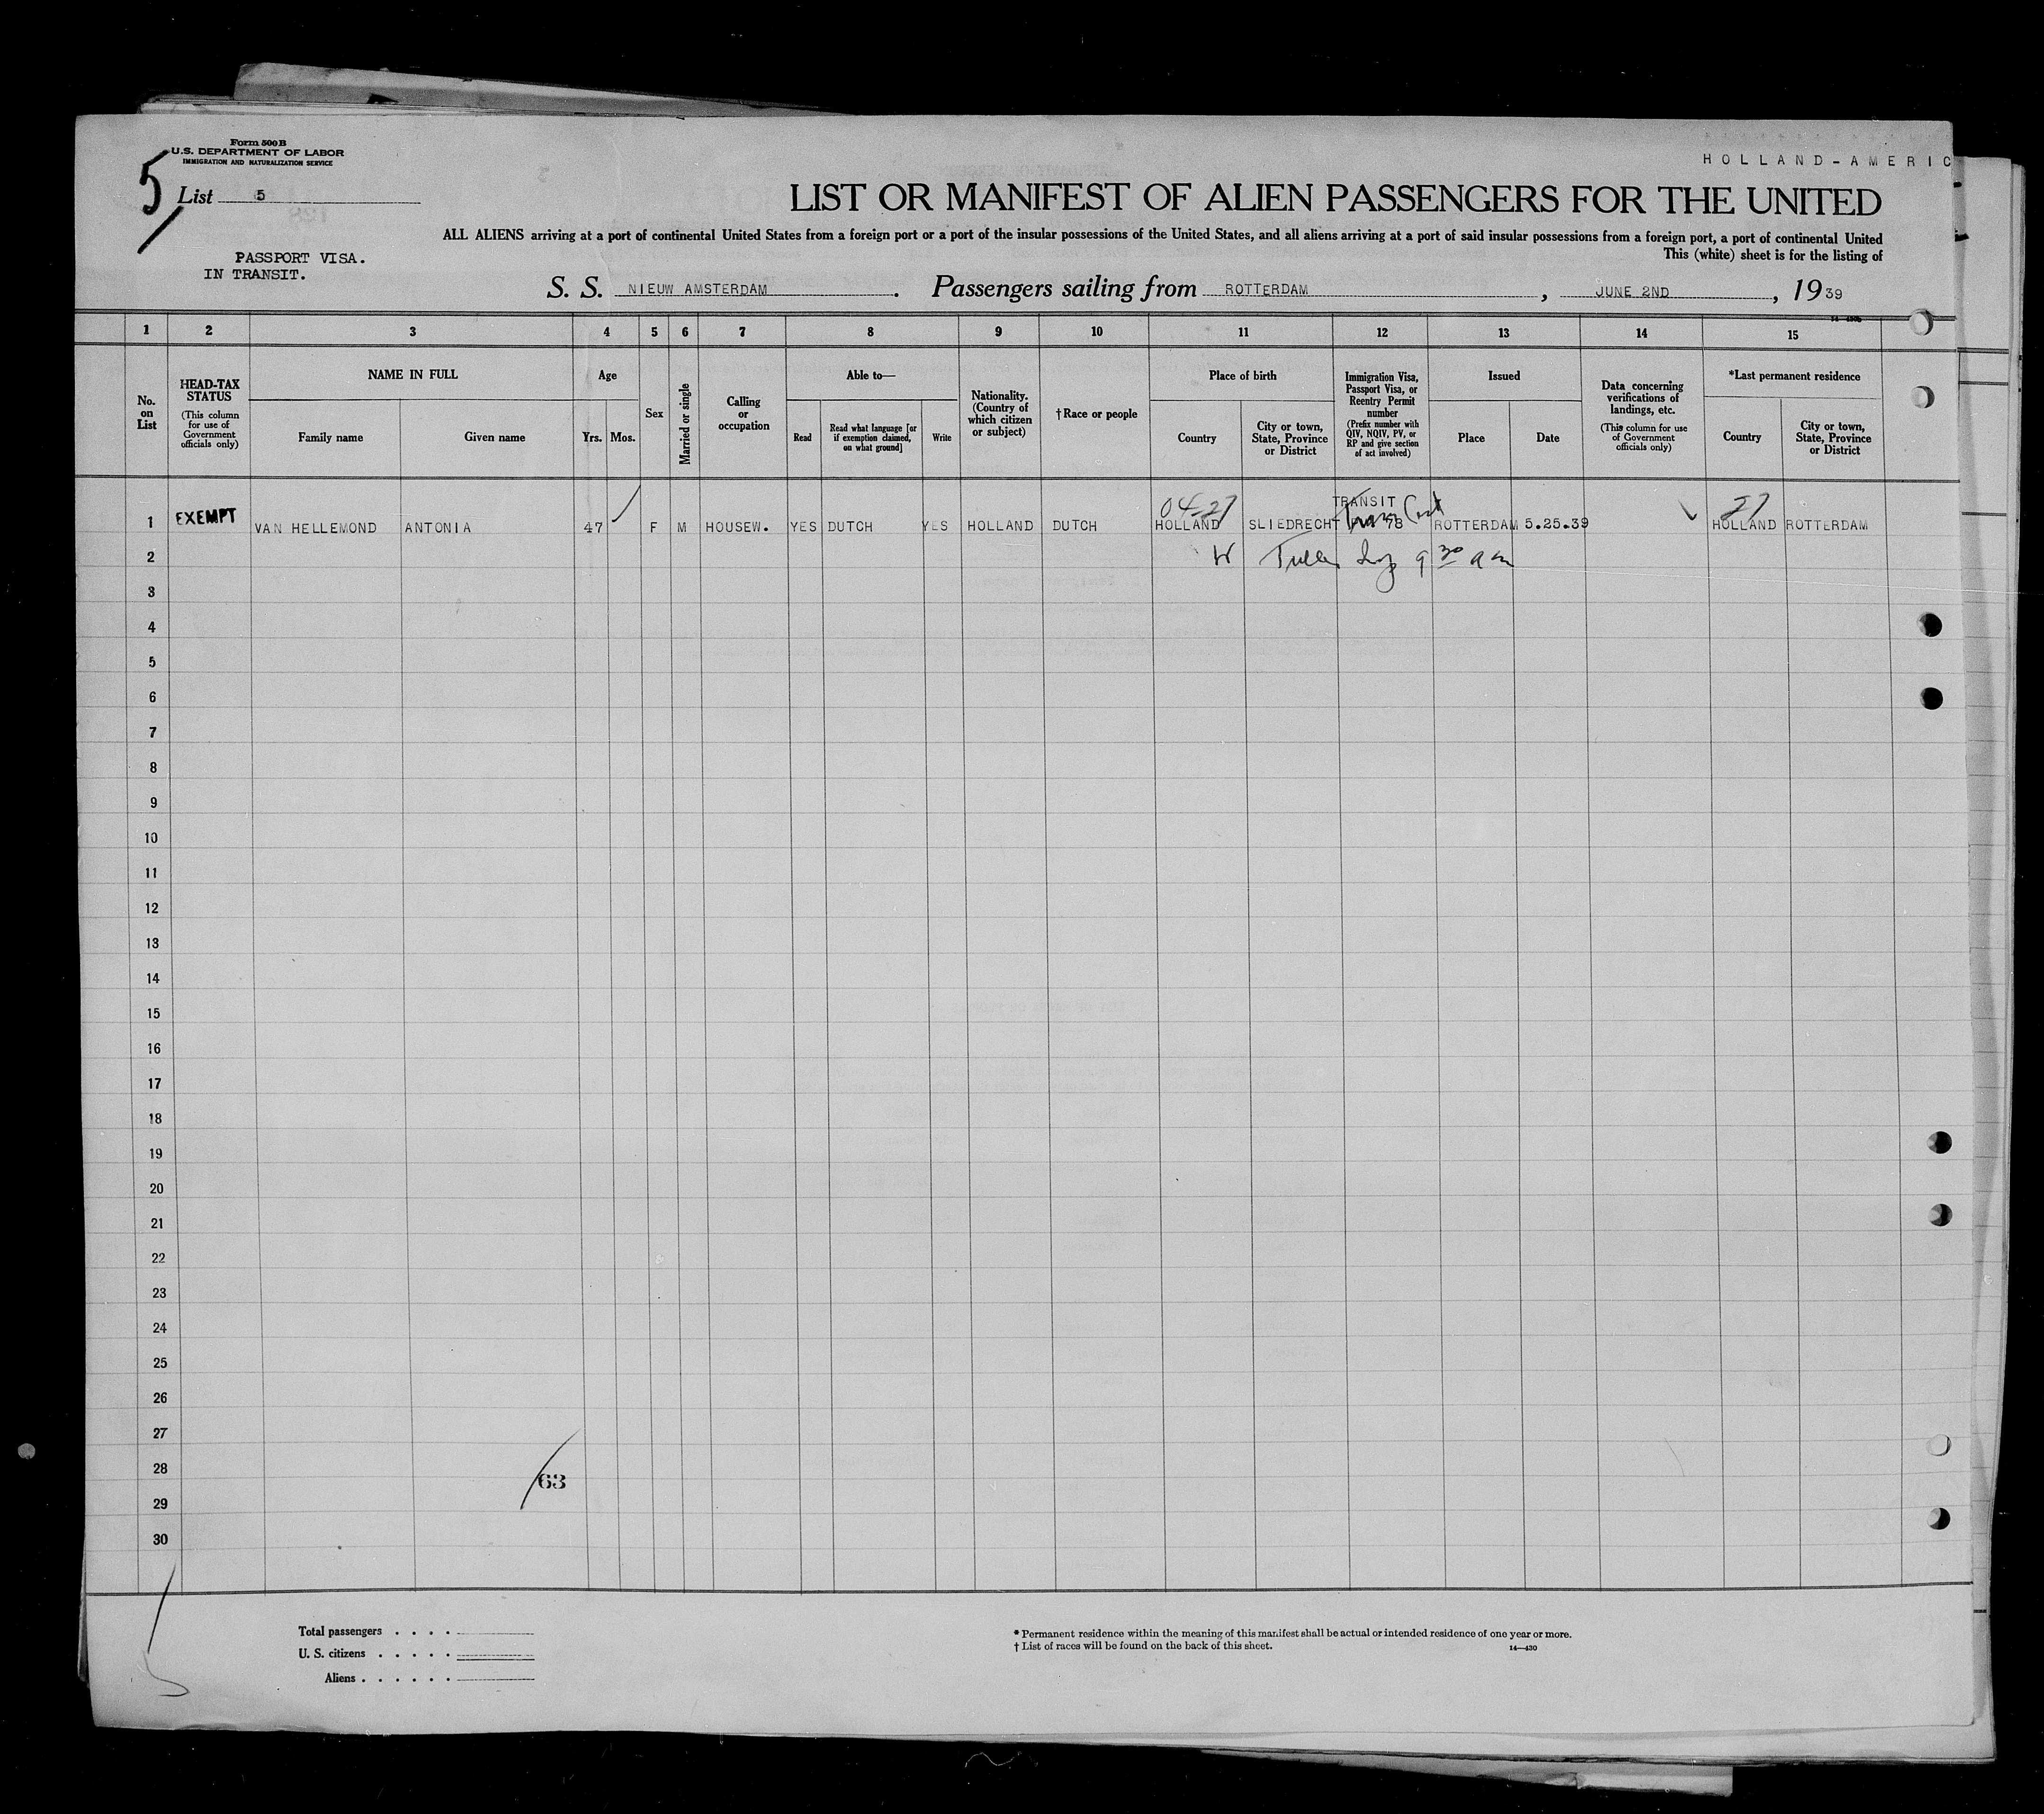 Form 500 B
U.S. DEPARTMENT OF LABOR
IMMIGRATION AND NATURALIZATION SERVICE
5
List 5
HOLLAND-AMERIC
LIST OR MANIFEST OF ALIEN PASSENGERS FOR THE UNITED
ALL ALIENS arriving at a port of continental United States from a foreign port or a port of the insular possessions of the United States, and all aliens arriving at a port of said insular possessions from a foreign port, a port of continental United
This (white) sheet is for the listing of
PASSPORT VISA.
IN TRANSIT.
S. S. NIEUW AMSTERDAM. Passengers sailing from ROTTERDAM, JUNE 2ND, 1939
1 2 3 4 5 6 7 8 9 10 11 12 13 14 15
No. on List
HEAD-TAX STATUS (This column for use of Government officials only)
NAME IN FULL
Family name
Given name
Age
Yrs.
Mos.
Sex
Married or single
Calling or occupation
Able to—
Read
Read what language [or if exemption claimed, on what ground]
Write
Nationality. (Country of which citizen or subject)
† Race or people
Place of birth
Country
City or town, State, Province or District
Immigration Visa, Passport Visa, or Reentry Permit number (Prefix number with QIV, NQIV, PV, or RP and give section of act involved)
Issued
Place
Date
Data concerning verifications of landings, etc. (This column for use of Government officials only)
*Last permanent residence
Country
City or town, State, Province or District
04-27 TRANSIT 27
1 EXEMPT VAN HELLEMOND ANTONIA 47 F M HOUSEW. YES DUTCH YES HOLLAND DUTCH HOLLAND SLIEDRECHT 78 ROTTERDAM 5.25.39 HOLLAND ROTTERDAM
2 9 30 am
3
4
5
6
7
8
9
10
11
12
13
14
15
16
17
18
19
20
21
22
23
24
25
26
27
28
63
29
30
Total passengers . . . .
U. S. citizens . . . . .
Aliens . . . . . .
* Permanent residence within the meaning of this manifest shall be actual or intended residence of one year or more.
† List of races will be found on the back of this sheet.
14—430